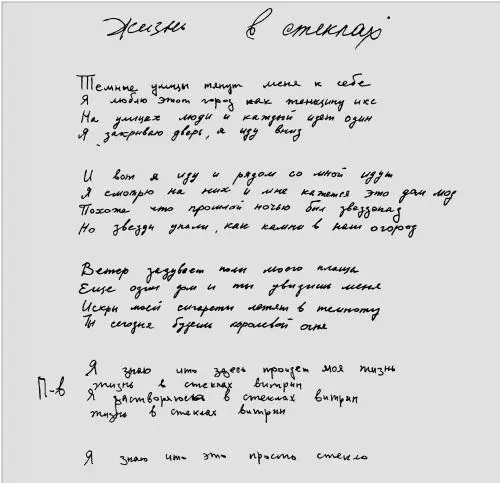 Жизнь в стеклах
Темные улицы тянут меня к себе
Я люблю этот город как женщину икс
На улицах люди и каждый идет один
Я закрываю дверь, я иду вниз
И вот я иду и рядом со мной идут
Я смотрю на них и мне кажется это дом мод
Похоже что прошлой ночью был звездопад
Но звезды упали, как камни в наш огород
Ветер задувает полы моего плаща
Еще один дом и ты увидишь меня
Искры моей сигареты летят в темноту
Ты сегодня будешь королевой огня
Я знаю что здесь пройдет моя жизнь
П-в жизнь в стеклах витрин
Я растворяюсь в стеклах витрин
жизнь в стеклах витрин
Я знаю что это просто стекло